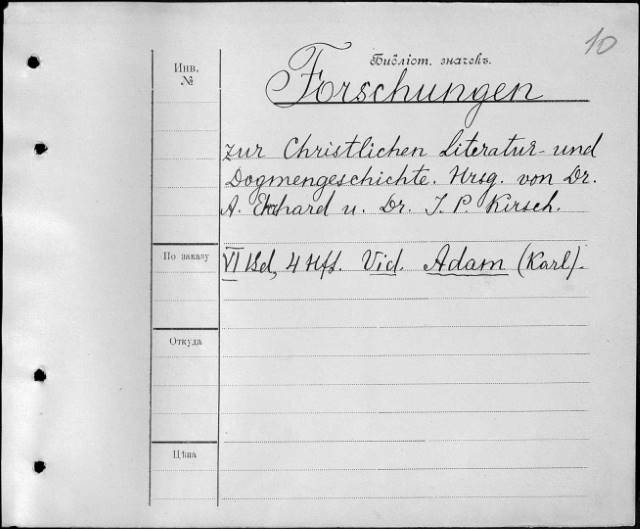 10
Библіот. значекъ.
Инв.
№
Forschungen
zur Christlichen Literatur- und
Dogmengeschichte. Hrsg. von Dr.
A. Ehrhard u. Dr. J. P. Kirsch.
По заказу
VI Bd, 4 Hft. Vid. Adam (Karl).
Откуда
Цѣна